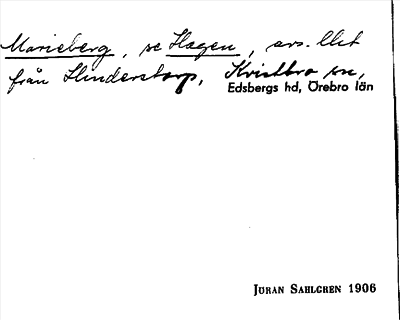 Marieberg, se Hagen, avs. Utst
från Hinderstorp, Kvistbro sn,
Edsbergs hd, Örebro län
JÖRAN SAHLGREN 1906